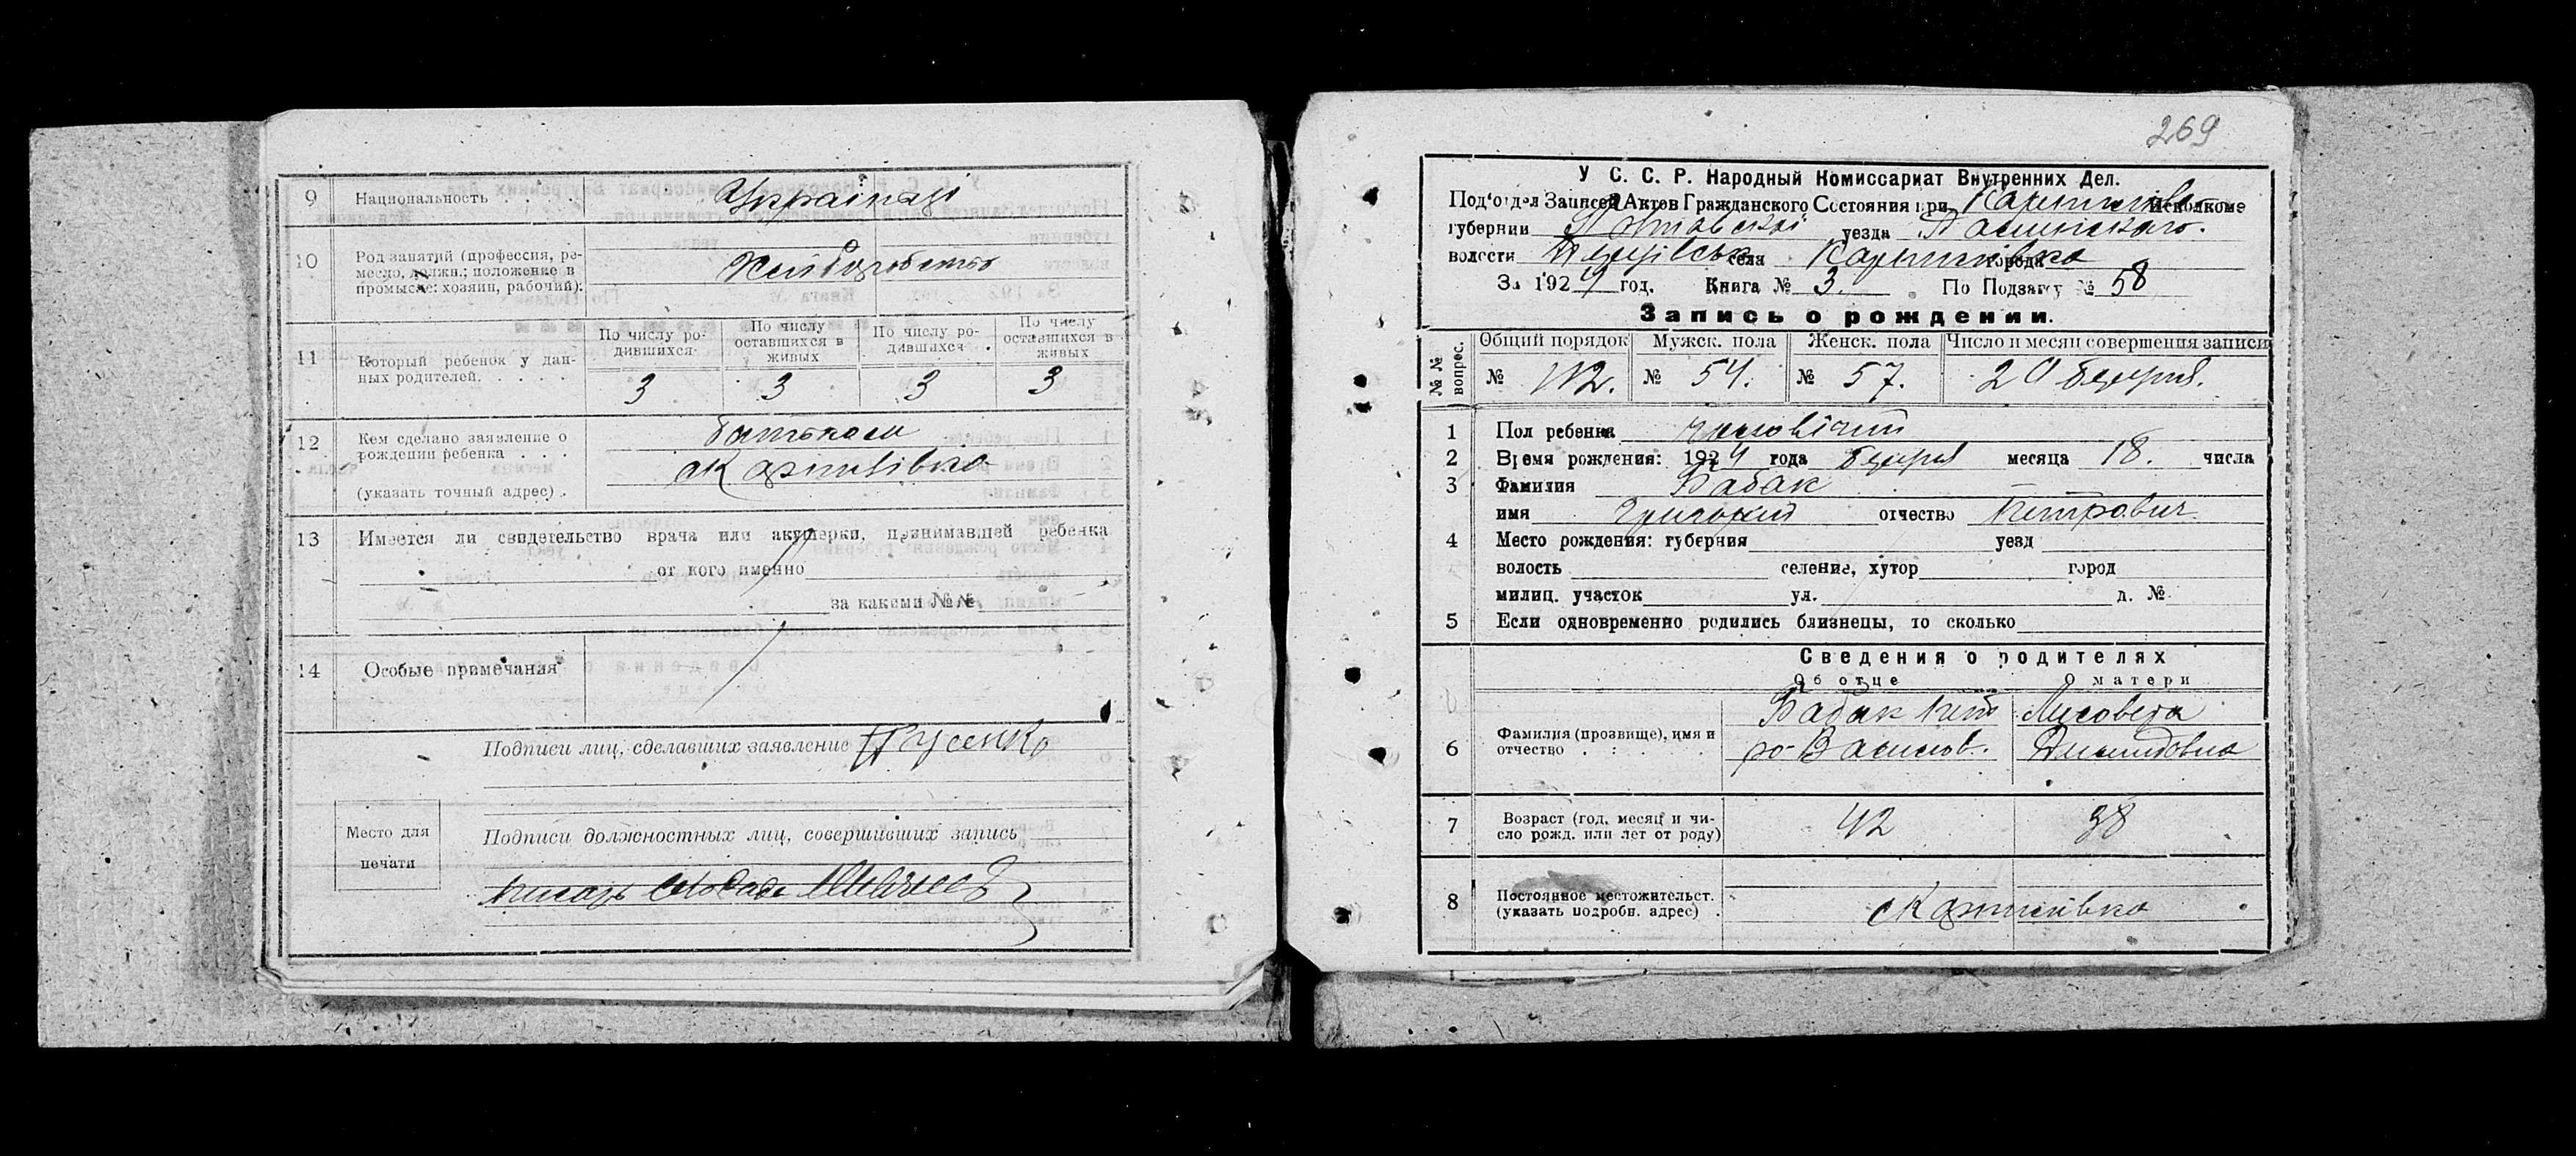 9 Национальность . . . . Українці
10 Род занятий (профессия, ре-
месло, должн.; положение в
промысле: хозяин, рабочий). Хліборобство
11 Который ребенок у дан-
ных родителей. . . . .
По числу ро-
дившихся
По числу
оставшихся в
живых
По числу ро-
дившихся
По числу
оставшихся в
живых
3 3 3 3
12 Кем сделано заявление о
рождении ребенка . . .
(указать точный адрес) .
батьком
13 Имеется ли свидетельство врача или акушерки, принимавшей ребенка
от кого именно
за какеми №№.
14 Особые примечания
Подписи лиц, сделавших заявление
Место для
печати
Подписи должностных лиц, совершивших запись
269
У С. С. Р. Народный Комиссариат Внутренних Дел.
Под'отдел Записей Актов Гражданского Состояния при Исполкоме
губернии Полтавської уезда
волости села города
За 1924 год. Книга № 3. По Подзагу № 58
Запись о рождении.
№№ вопрос.
Общий порядок Мужск. пола Женск. пола Число и месяц совершения записи
№ 112. № 54. № 57.
1 Пол ребенка чоловічий
2 Время рождения: 1924 года месяца 18. числа
3 Фамилия Бабак
имя Григорий отчество Петрович
4 Место рождения: губерния уезд
волость селение, хутор город
милиц. участок ул. д. №
5 Если одновременно родились близнецы, то сколько
Сведения о родителях
Об отце О матери
6 Фамилия (прозвище), имя и
отчество . : . . .
Бабак Пет
ро Васильов.
Лисовета
Демидовна
7 Возраст (год, месяц и чи-
сло рожд. или лет от роду) 42 38
8 Постоянное местожительст.
(указать подробн. адрес) .